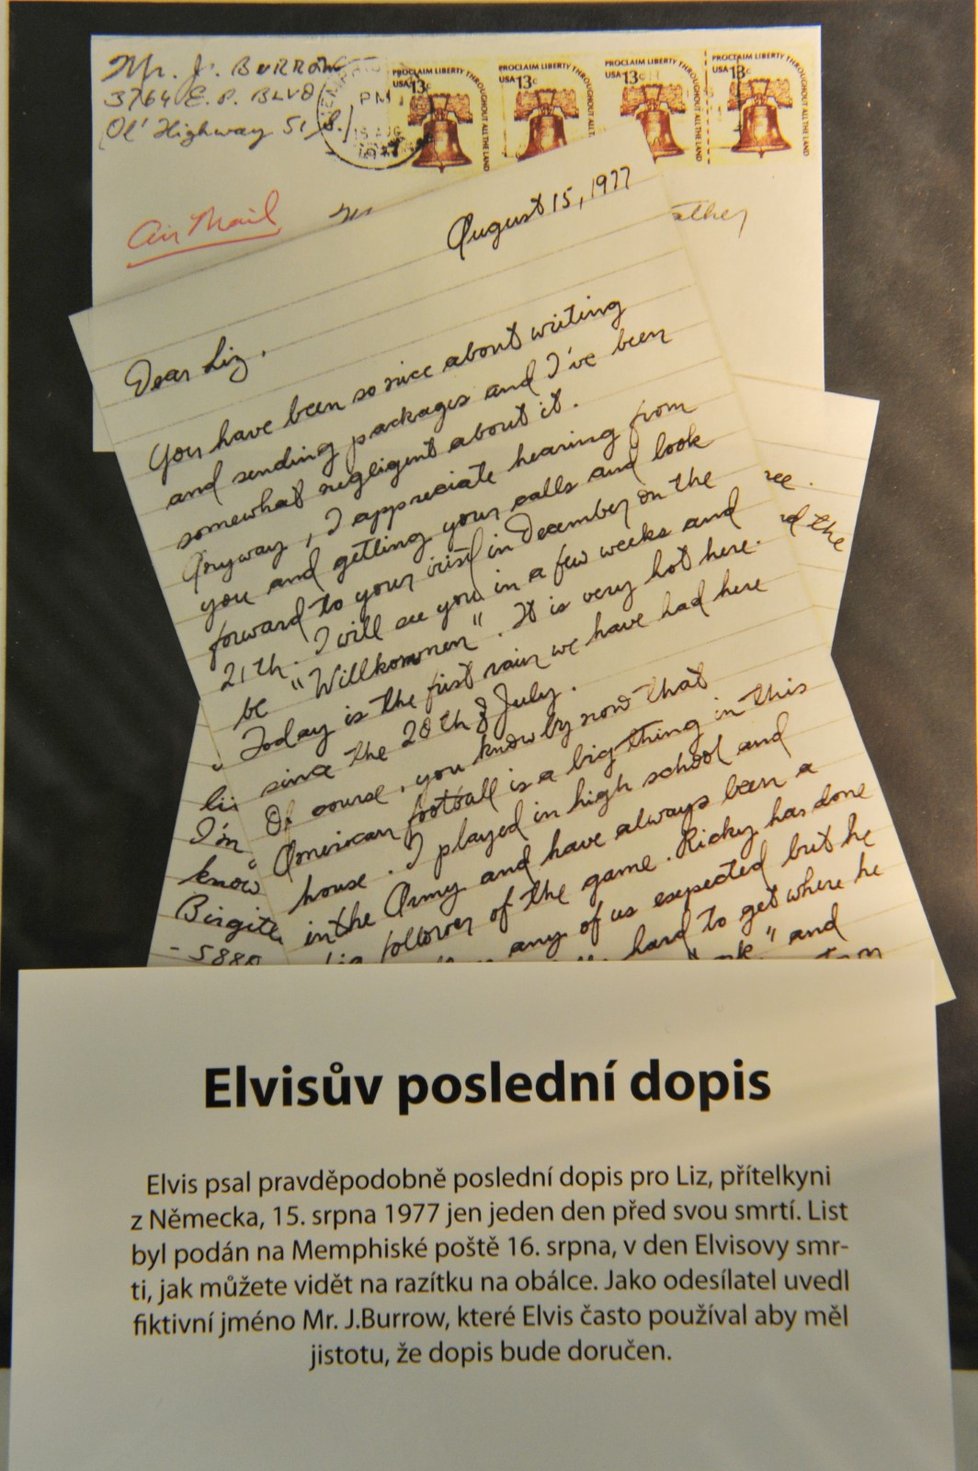 Mr. J. BURROW
3764 E. P. BLVD
Ol' Highway 51 S.
PM
PROCLAIM LIBERTY THROUGHOUT ALL THE LAND
USA 13c
PROCLAIM LIBERTY THROUGHOUT ALL
USA 13c
PROCLAIM LIBERTY THROUGHOUT ALL THE LAND
USA 13c
PROCLAIM LIBERTY THROUGHOUT ALL THE LAND
USA 13c
Air Mail
August 15, 1977
Dear Liz,
You have been so nice about writing
and sending packages and I've been
somewhat negligent about it.
Anyway, I appreciate hearing from
you and getting your calls and look
forward to your visit in December on the
21th. I will see you in a few weeks and
be "Willkommen". It is very hot here.
Today is the first rain we have had here
since the 28th of July.
Of course, you know by now that
American football is a big thing in this
house. I played in high school and
in the Army and have always been a
follower of the game. Ricky has done
any of us expected but he
hard to get where he
" and
nd the
I'm
know
Birgite
- 5880
Elvisův poslední dopis
Elvis psal pravděpodobně poslední dopis pro Liz, přítelkyni
z Německa, 15. srpna 1977 jen jeden den před svou smrtí. List
byl podán na Memphiské poště 16. srpna, v den Elvisovy smr-
ti, jak můžete vidět na razítku na obálce. Jako odesílatel uvedl
fiktivní jméno Mr. J.Burrow, které Elvis často používal aby měl
jistotu, že dopis bude doručen.